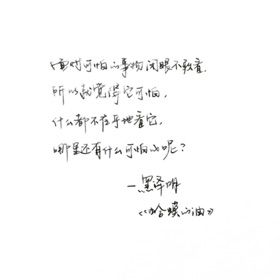 面对可怕的事物闭眼不敢看,
所以就觉得它可怕,
什么都不在乎地看它,
哪里还有什么可怕的呢?
—黑泽明
《蛤蟆的油》